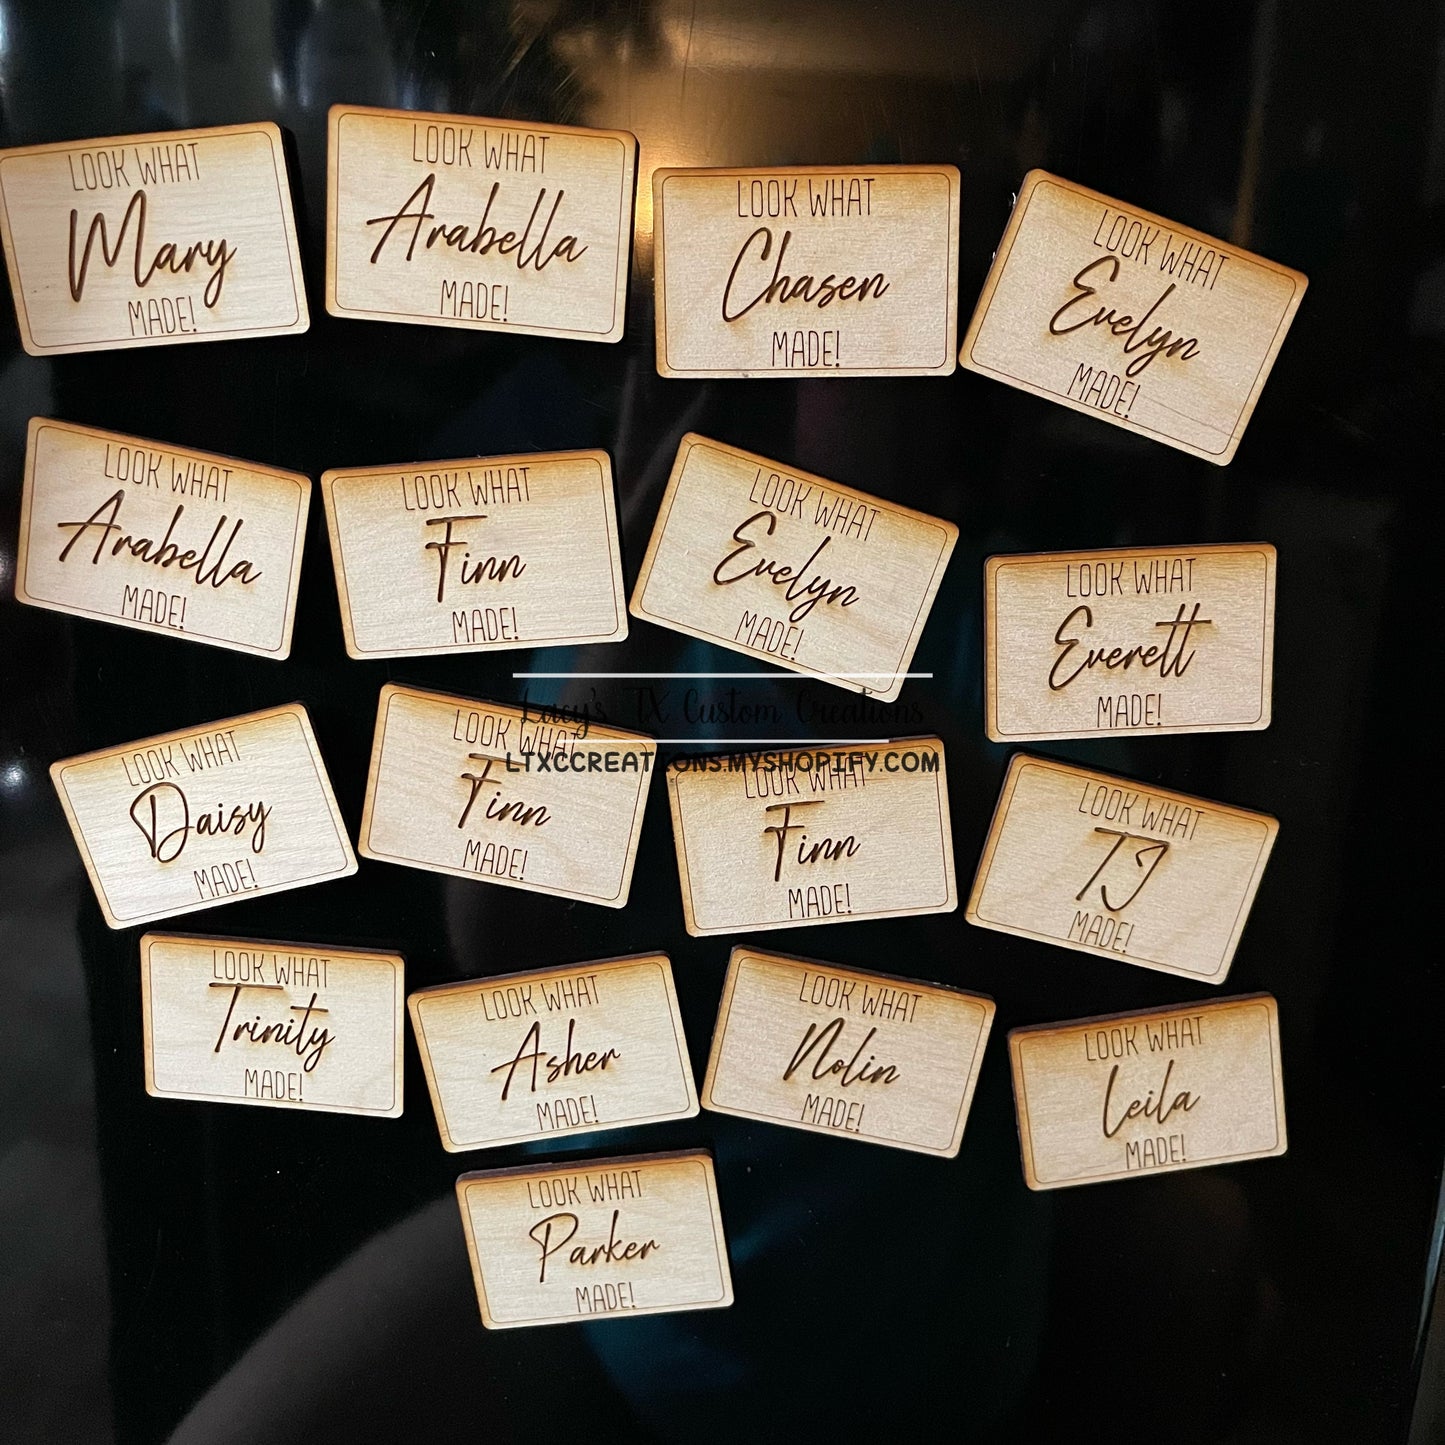 LOOK WHAT
Mary
MADE!
LOOK WHAT
Arabella
MADE!
LOOK WHAT
Chasen
MADE!
LOOK WHAT
Evelyn
MADE!
LOOK WHAT
Arabella
MADE!
LOOK WHAT
Finn
MADE!
LOOK WHAT
Evelyn
MADE!
LOOK WHAT
Everett
MADE!
Lacy's TX Custom Creations
LTXCCREATIONS.MYSHOPIFY.COM
LOOK WHAT
Daisy
MADE!
LOOK WHAT
Finn
MADE!
LOOK WHAT
Finn
MADE!
LOOK WHAT
TJ
MADE!
LOOK WHAT
Trinity
MADE!
LOOK WHAT
Asher
MADE!
LOOK WHAT
Nolin
MADE!
LOOK WHAT
Leila
MADE!
LOOK WHAT
Parker
MADE!